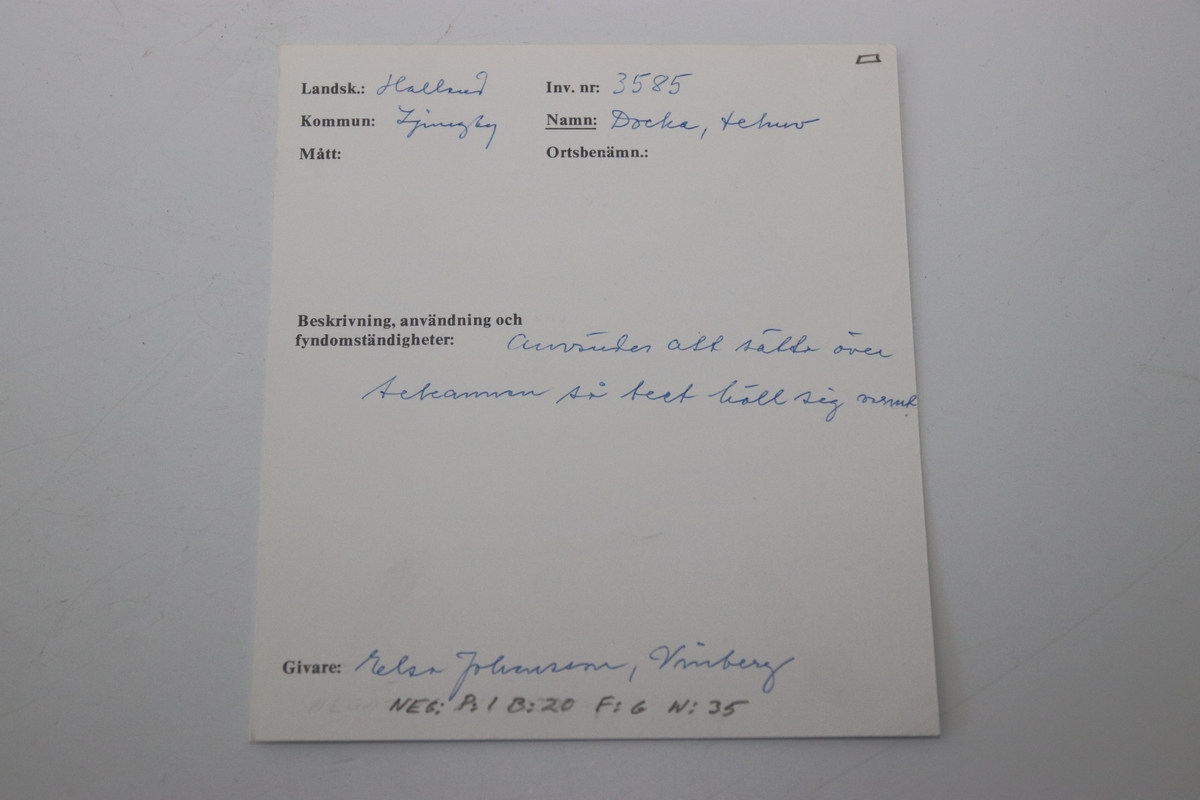 Landsk.: Halland
Inv. nr: 3585
Kommun: Ljungby
Namn: Docka, tehuv
Mått:
Ortsbenämn.:
Beskrivning, användning och
fyndomständigheter: Användes att sätta över
tekannan så teet höll sig varmt
Givare: Elsa Johansson, Vinberg
NEG: P:1 B:20 F:6 N:35